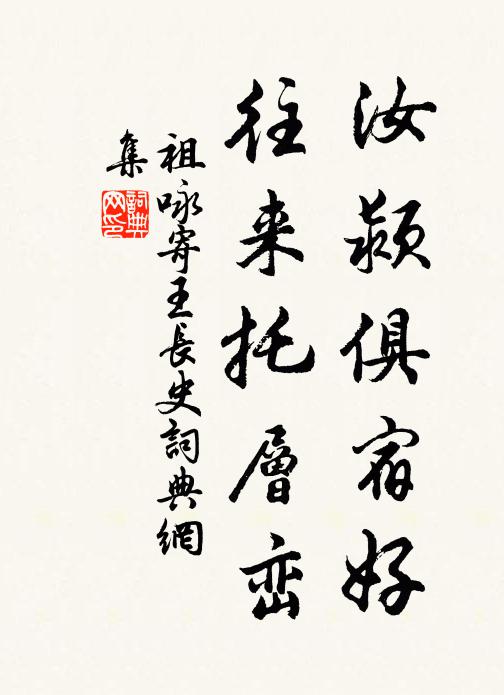 汝颍俱宿好
往来托層峦
祖咏寄王長史詞典網
集
詞典网印